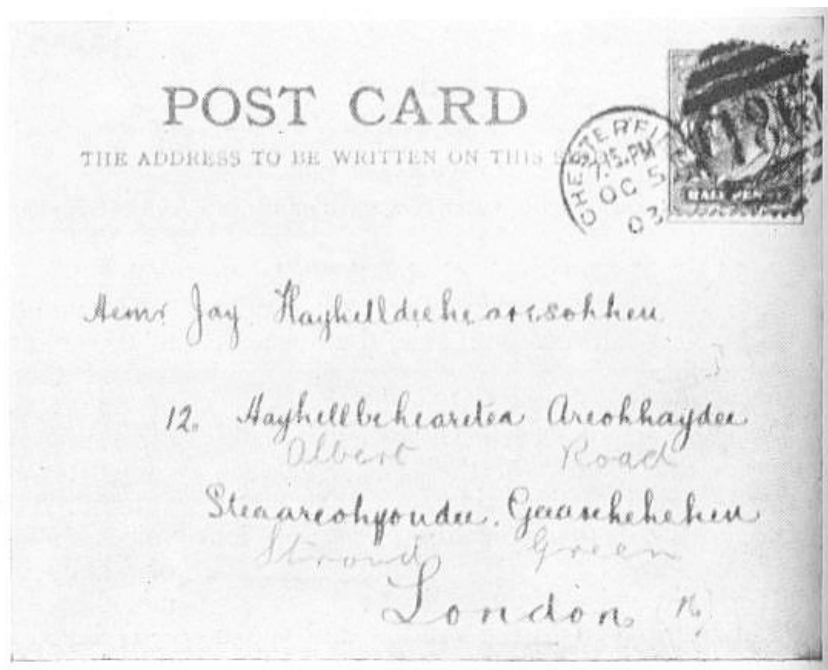 POST CARD
THE ADDRESS TO BE WRITTEN ON THIS
CHESTERFIE
7.15.PM
OC 5
03
HALF PENNY
Jay Hayhelldeehearesohhen
12. Hayhellbehearetea Areohhaydee
Albert Road
Steaareohyoudee.
Stroud Green
London N.